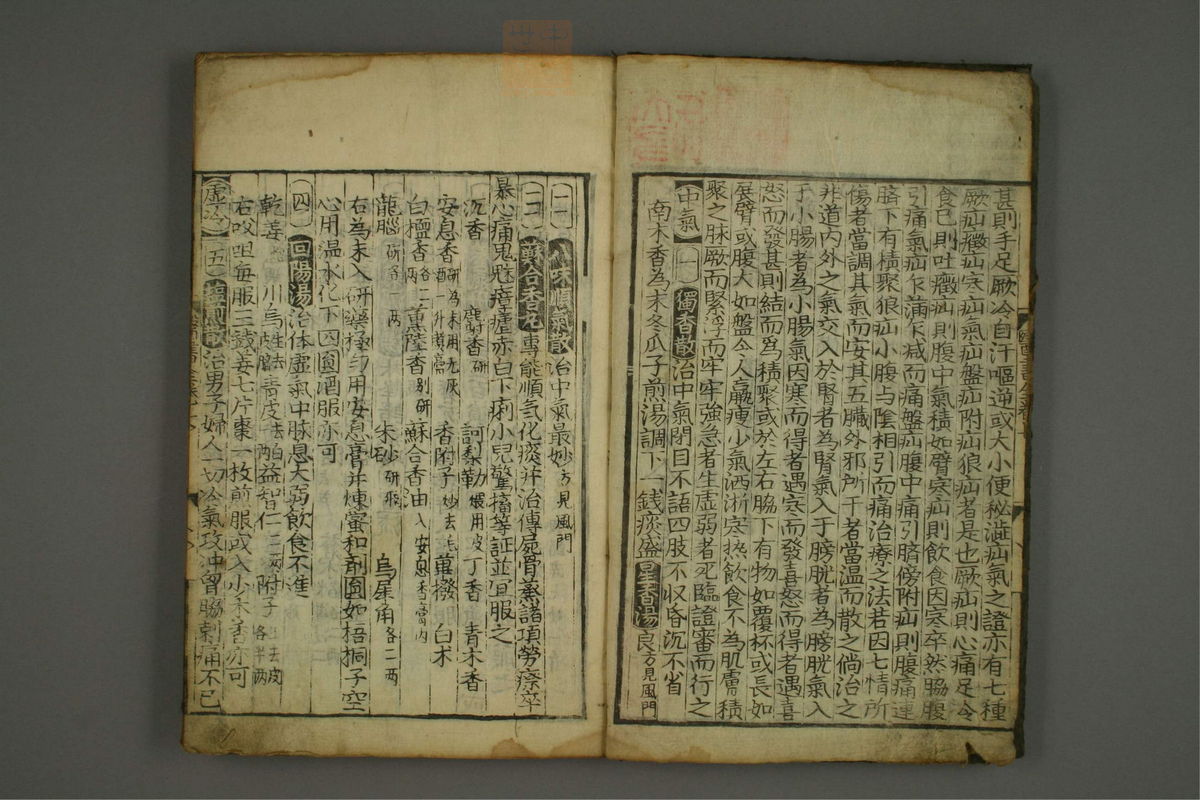 甚則手足厥冷自汗嘔逆或大小便秘澁疝氣之證亦有七種
厥疝癥疝寒疝氣疝盤疝附疝狼疝者是也厥疝則心痛足冷
食已則吐癥疝則腹中氣積如臂寒疝則飲食因寒卒然脇腹
引痛氣疝乍滿乍减而痛盤疝腹中痛引臍傍附疝則腹痛連
臍下有積聚狼疝小腹与陰相引而痛治療之法若因七情所
傷者當調其氣而安其五臟外邪所干者當温而散之倘治之
非道内外之氣交入於腎者為腎氣入于膀胱者為膀胱氣入
于小腸者為小腸氣因寒而得者遇寒而發喜怒而得者遇喜
怒而發甚則結而為積聚或於左右脇下有物如覆杯或長如
展臂或腹大如盤令人羸瘦少氣洒淅寒熱飲食不為肌膚積
聚之脉厥而緊浮而牢牢強急者生虚弱者死臨證審而行之
中氣 一 獨香散 治中氣閉目不語四肢不収昏沉不省
南木香為末冬瓜子煎湯調下一錢痰盛 星香湯 良方見風門
二 八味順氣散 治中氣最妙方見風門
三 蘇合香丸 專能順氣化痰并治傳屍骨蒸諸項勞瘵卒
暴心痛鬼魅瘴瘧赤白下痢小兒驚搐等証並宜服之
沉香 麝香研 訶梨勒煨用皮 丁香 青木香
安息香研為末用无灰酒一升熬膏 香附子炒去毛 蓽撥 白朮
白檀香各二兩 薫陸香别研 蘇合香油入安息香膏内
龍腦研各一兩 朱砂研飛 烏犀角各二兩
右為末入研藥極匀用安息膏并煉蜜和劑圓如梧桐子空
心用温水化下四圓酒服亦可
四 回陽湯 治体虚氣中肢息大弱飲食不進
乾姜 川烏 青皮 益智仁二兩 附子
右㕮咀每服三錢姜七片棗一枚煎服或入少木香亦可
虚冷 五 治男子婦人一切冷氣攻冲胷脇刺痛不已